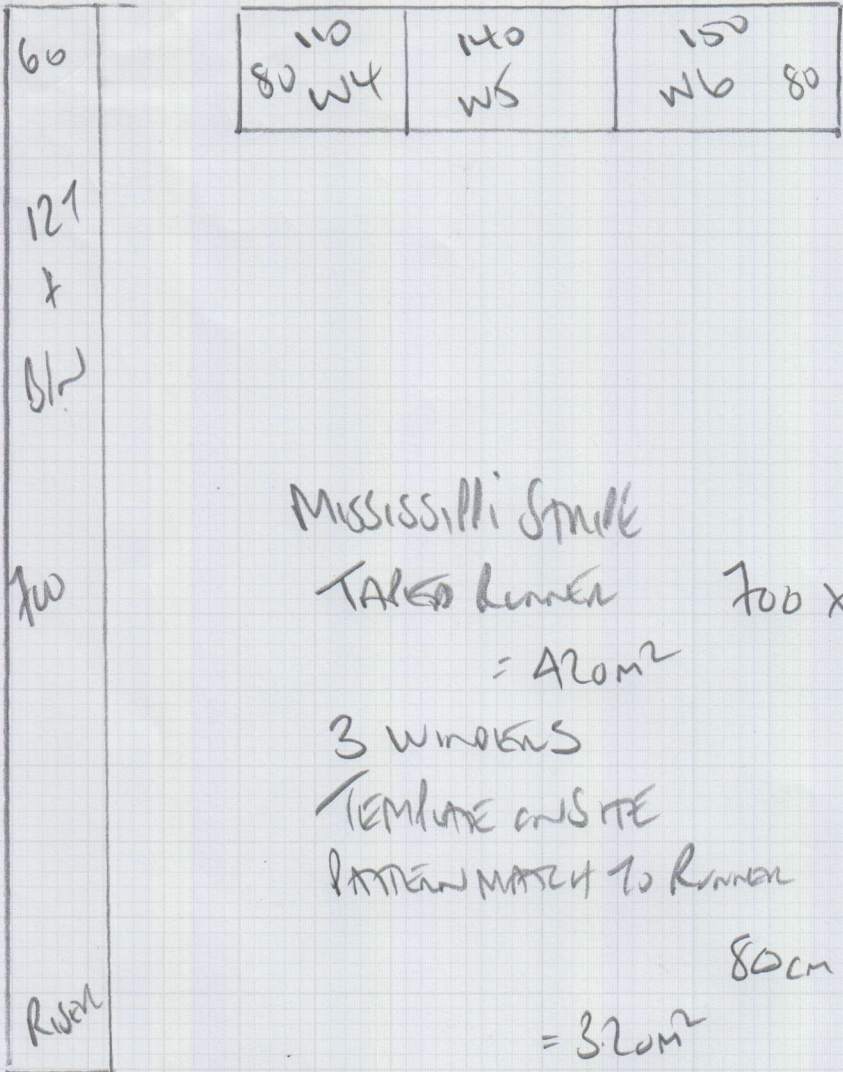 60
110
80 W4
140
W5
150
W6 80
12T
+
700
MISSISSIPPI STRIPE
TAPED RUNNER 700 X
= 4.20M²
3 WINDERS
TEMPLATE ONSITE
PATTERN MATCH TO RUNNER
80CM
RISER
= 3.20M²